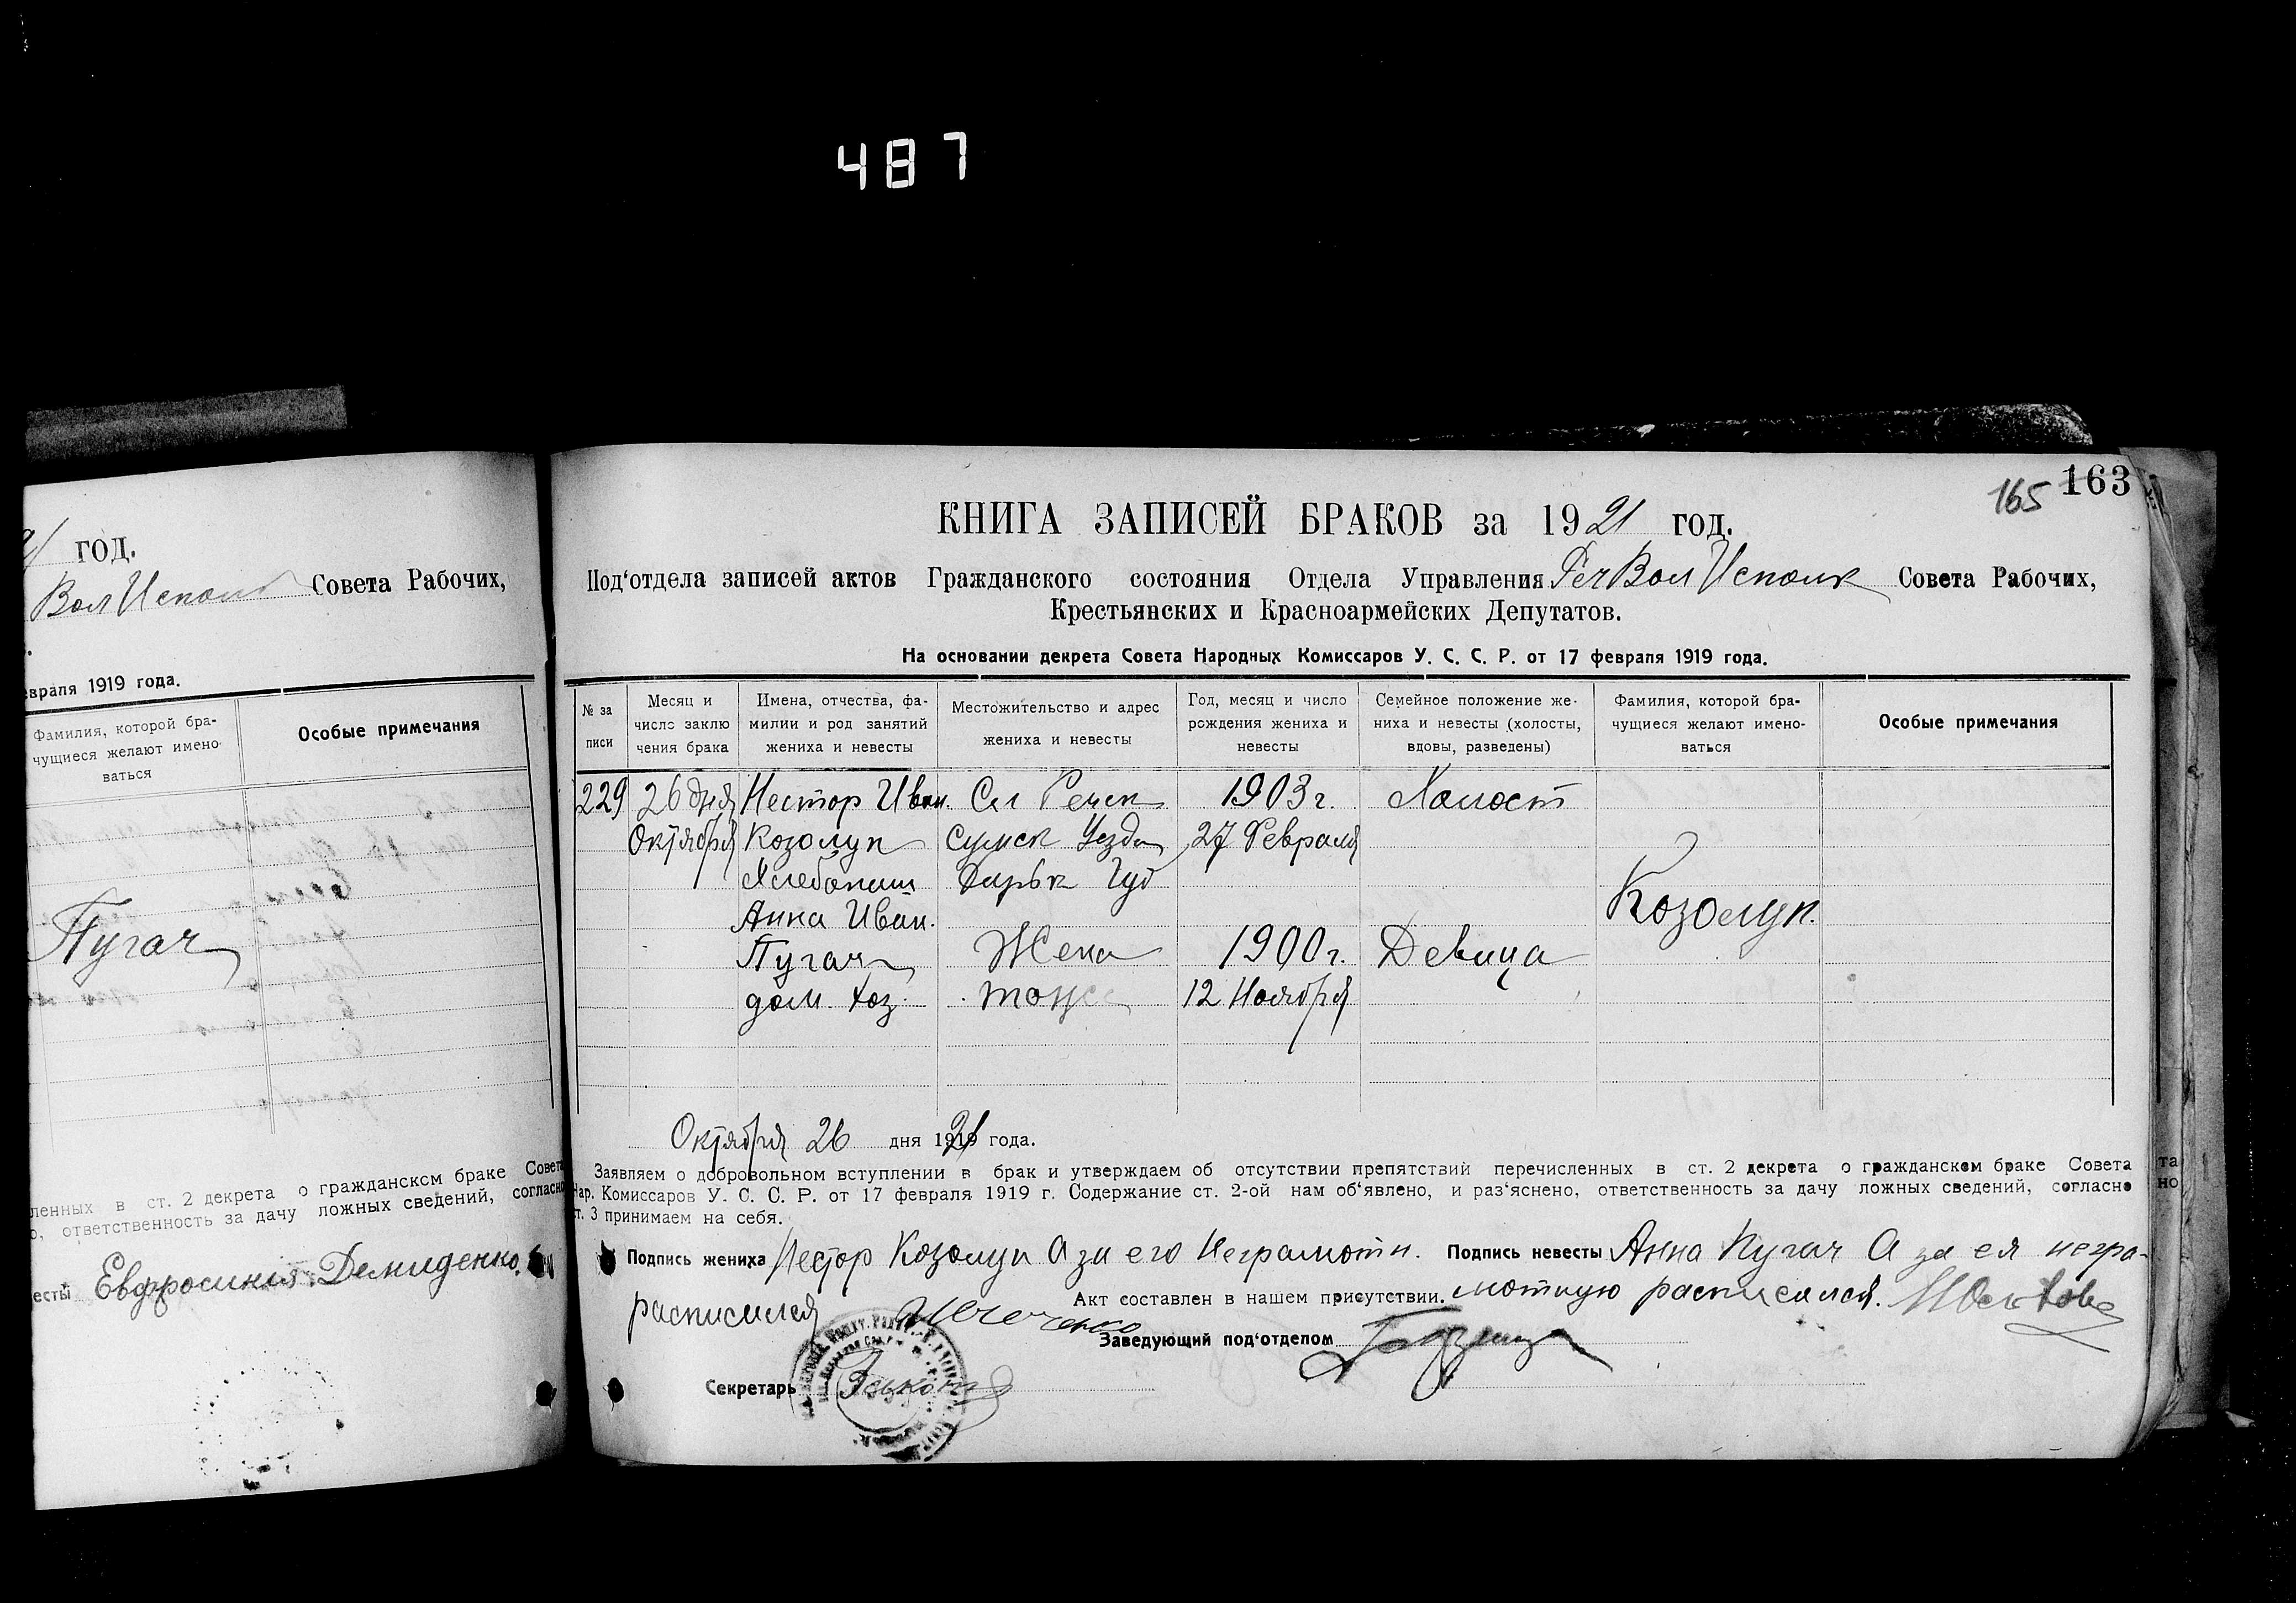 487
год.
Вол Исполк Совета Рабочих,
евраля 1919 года.
Фамилия, которой бра-
чущиеся желают имено-
ваться
Особые примечания
Пугач
ленных в ст. 2 декрета о гражданском браке Совета
о, ответственность за дачу ложных сведений, согласно
есты Евфросиния Демиденко
165 163
КНИГА ЗАПИСЕЙ БРАКОВ за 1921 год.
Под‘отдела записей актов Гражданского состояния Отдела Управления РечВолИсполк Совета Рабочих,
Крестьянских и Красноармейских Депутатов.
На основании декрета Совета Народных Комиссаров У. С. С. Р. от 17 февраля 1919 года.
№ за
писи
Месяц и
число заклю
чения брака
Имена, отчества, фа-
милии и род занятий
жениха и невесты
Местожительство и адрес
жениха и невесты
Год, месяц и число
рождения жениха и
невесты
Семейное положение же-
ниха и невесты (холосты,
вдовы, разведены)
Фамилия, которой бра-
чущиеся желают имено-
ваться
Особые примечания
229 26 дня Нестор Иван. Сл Речк 1903 г. Холост
Октября Козолуп Сумск Уезда 27 Февраля
Хлебопаш Харьк Губ
Анна Иван. Козолуп.
Пугач Жена 1900 г. Девица
дом. хоз. тоже 12 Ноября
Октября 26 дня 1921 года.
Заявляем о добровольном вступлении в брак и утверждаем об отсутствии препятствий перечисленных в ст. 2 декрета о гражданском браке Совета
Нар. Комиссаров У. С. С. Р. от 17 февраля 1919 г. Содержание ст. 2-ой нам об‘явлено, и раз‘яснено, ответственность за дачу ложных сведений, согласно
ст. 3 принимаем на себя.
Подпись жениха Нестор Козолуп А за его Неграмотн. Подпись невесты Анна Пугач А за ея негра-
расписился Акт составлен в нашем присутствии. мотную расписался.
Заведующий под‘отделом
Секретарь